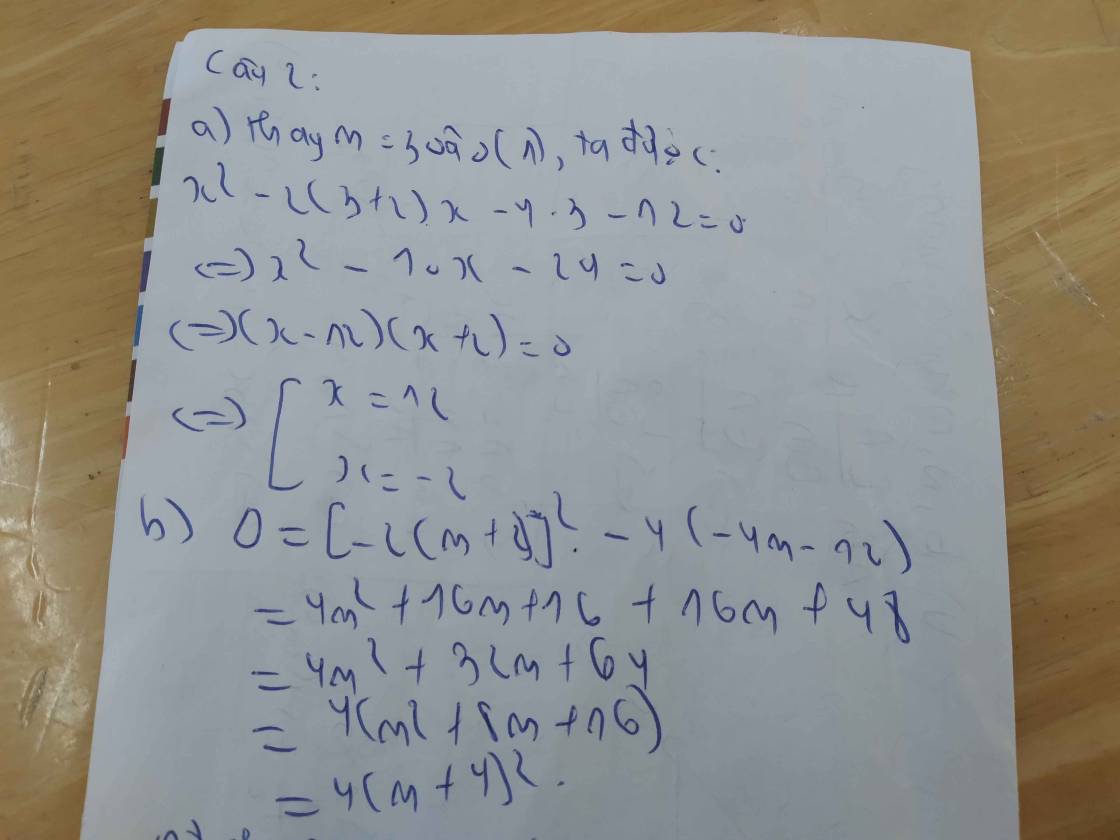 Câu 2:
a) Thay m = 3 vào (1), ta được:
x² - 2(3+2)x - 4.3 - 12 = 0
<=> x² - 10x - 24 = 0
<=> (x - 12)(x + 2) = 0
<=> [ x = 12
x = -2
b) Δ = [-2(m + 2)]² - 4(-4m - 12)
= 4m² + 16m + 16 + 16m + 48
= 4m² + 32m + 64
= 4(m² + 8m + 16)
= 4(m + 4)².